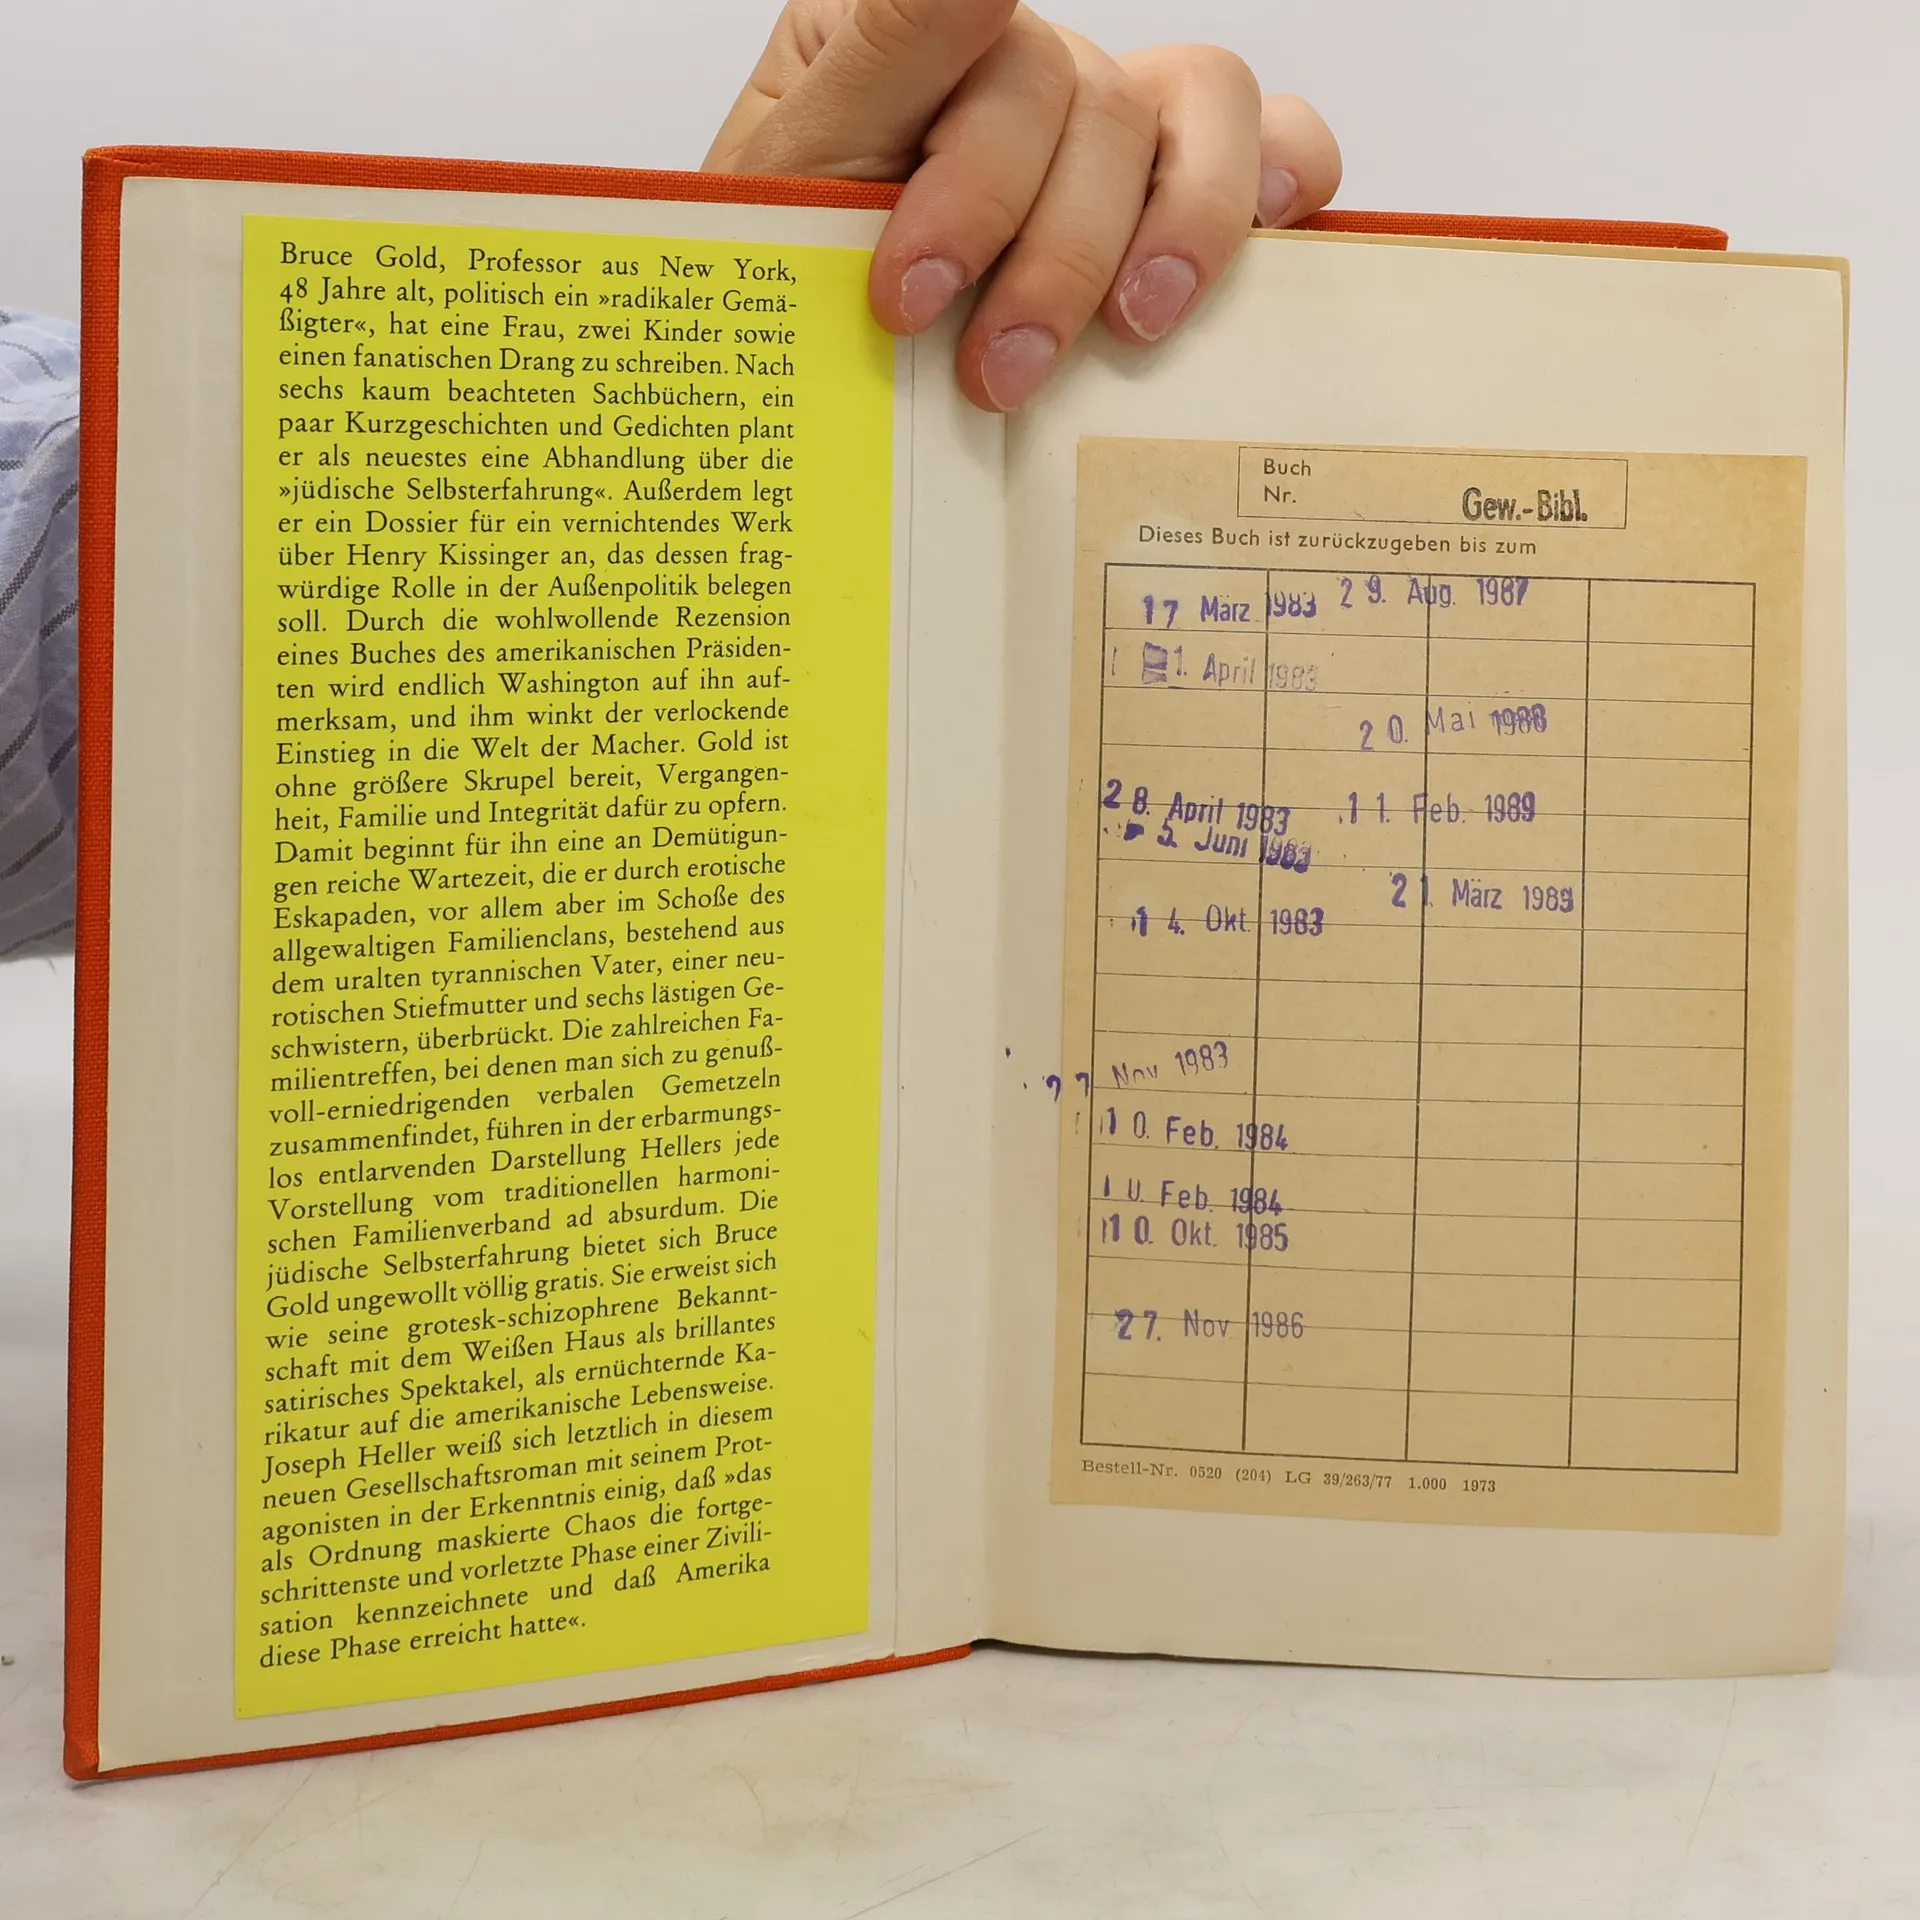 Bruce Gold, Professor aus New York,
48 Jahre alt, politisch ein »radikaler Gemä-
ßigter«, hat eine Frau, zwei Kinder sowie
einen fanatischen Drang zu schreiben. Nach
sechs kaum beachteten Sachbüchern, ein
paar Kurzgeschichten und Gedichten plant
er als neuestes eine Abhandlung über die
»jüdische Selbsterfahrung«. Außerdem legt
er ein Dossier für ein vernichtendes Werk
über Henry Kissinger an, das dessen frag-
würdige Rolle in der Außenpolitik belegen
soll. Durch die wohlwollende Rezension
eines Buches des amerikanischen Präsiden-
ten wird endlich Washington auf ihn auf-
merksam, und ihm winkt der verlockende
Einstieg in die Welt der Macher. Gold ist
ohne größere Skrupel bereit, Vergangen-
heit, Familie und Integrität dafür zu opfern.
Damit beginnt für ihn eine an Demütigun-
gen reiche Wartezeit, die er durch erotische
Eskapaden, vor allem aber im Schoße des
allgewaltigen Familienclans, bestehend aus
dem uralten tyrannischen Vater, einer neu-
rotischen Stiefmutter und sechs lästigen Ge-
schwistern, überbrückt. Die zahlreichen Fa-
milientreffen, bei denen man sich zu genuß-
voll-erniedrigenden verbalen Gemetzeln
zusammenfindet, führen in der erbarmungs-
los entlarvenden Darstellung Hellers jede
Vorstellung vom traditionellen harmoni-
schen Familienverband ad absurdum. Die
jüdische Selbsterfahrung bietet sich Bruce
Gold ungewollt völlig gratis. Sie erweist sich
wie seine grotesk-schizophrene Bekannt-
schaft mit dem Weißen Haus als brillantes
satirisches Spektakel, als ernüchternde Ka-
rikatur auf die amerikanische Lebensweise.
Joseph Heller weiß sich letztlich in diesem
neuen Gesellschaftsroman mit seinem Prot-
agonisten in der Erkenntnis einig, daß »das
als Ordnung maskierte Chaos die fortge-
schrittenste und vorletzte Phase einer Zivili-
sation kennzeichnete und daß Amerika
diese Phase erreicht hatte«.
Buch
Nr. Gew.-Bibl.
Dieses Buch ist zurückzugeben bis zum
17 März 1983
1. April 1983
28. April 1983
5. Juni 1983
14. Okt. 1983
Nov 1983
10. Feb. 1984
10. Feb. 1984
10. Okt. 1985
27. Nov 1986
29. Aug. 1987
20. Mai 1988
11. Feb. 1989
21. März 1989
Bestell-Nr. 0520 (204) LG 39/263/77 1.000 1973